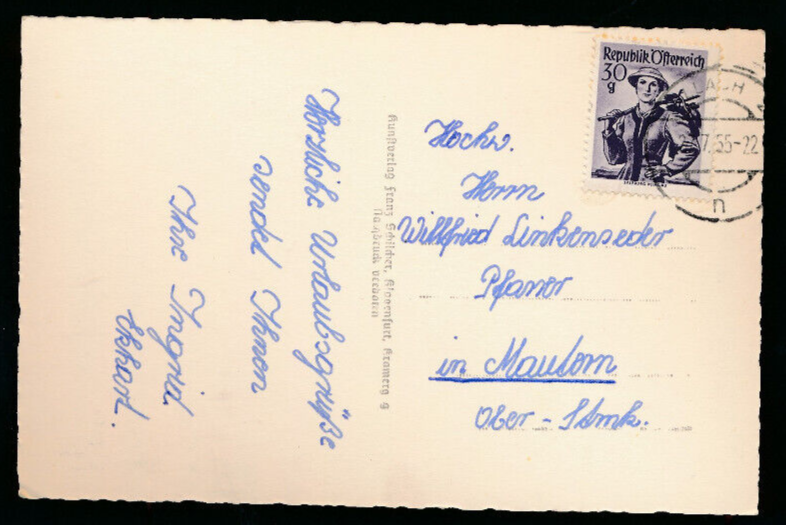 Herzliche Urlaubsgrüße
sendet Ihnen
Ihre Ingrid
Ekhart.
Kunstverlag Franz Schilcher, Klagenfurt, Kramerg 9
Nachdruck verboten
Republik Österreich
30
g
ACH
7.55-22
n
Hochw.
Herrn
Willfried Linkenseder
Pfarrer
in Mautern
Ober-Stmk.